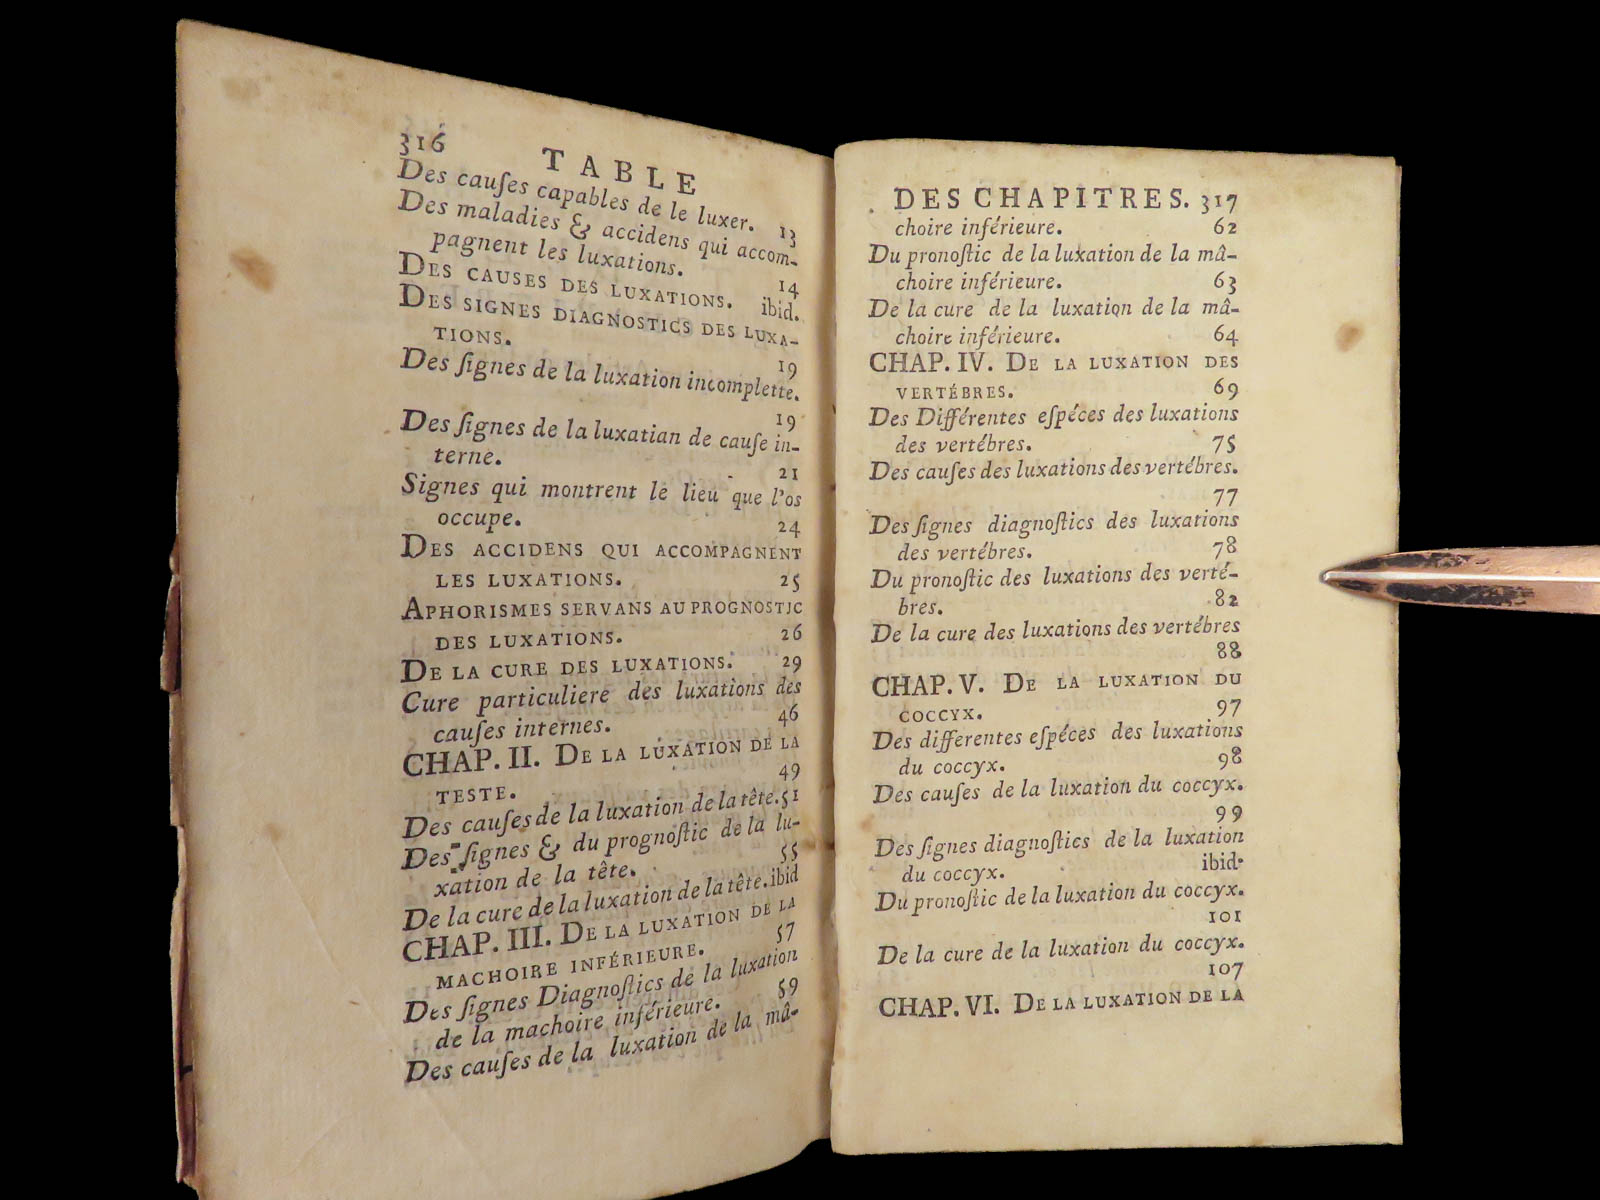 316
TABLE
Des cauſes capables de le luxer. 13
Des maladies & accidens qui accom-
pagnent les luxations. 14
DES CAUSES DES LUXATIONS. ibid.
DES SIGNES DIAGNOSTICS DES LUXA-
TIONS. 19
Des ſignes de la luxation incomplette.
19
Des ſignes de la luxatian de cauſe in-
terne. 21
Signes qui montrent le lieu que l'os
occupe. 24
DES ACCIDENS QUI ACCOMPAGNENT
LES LUXATIONS. 25
APHORISMES SERVANS AU PROGNOSTIC
DES LUXATIONS. 26
DE LA CURE DES LUXATIONS. 29
Cure particuliere des luxations des
cauſes internes. 46
CHAP. II. DE LA LUXATION DE LA
TESTE. 49
Des cauſes de la luxation de la tête. 51
Des ſignes & du prognoſtic de la lu-
xation de la tête. 55
De la cure de la luxation de la tête. ibid
CHAP. III. DE LA LUXATION DE LA
MACHOIRE INFÉRIEURE. 57
Des ſignes Diagnoſtics de la luxation
de la machoire inférieure. 59
Des cauſes de la luxation de la mâ-
DES CHAPITRES. 317
choire inférieure. 62
Du pronoſtic de la luxation de la mâ-
choire inférieure. 63
De la cure de la luxation de la mâ-
choire inférieure. 64
CHAP. IV. DE LA LUXATION DES
VERTÉBRES. 69
Des Différentes eſpéces des luxations
des vertébres. 75
Des cauſes des luxations des vertébres.
77
Des ſignes diagnoſtics des luxations
des vertébres. 78
Du pronoſtic des luxations des verté-
bres. 82
De la cure des luxations des vertébres
88
CHAP. V. DE LA LUXATION DU
COCCYX. 97
Des differentes eſpéces des luxations
du coccyx. 98
Des cauſes de la luxation du coccyx.
99
Des ſignes diagnoſtics de la luxation
du coccyx. ibid.
Du pronoſtic de la luxation du coccyx.
101
De la cure de la luxation du coccyx.
107
CHAP. VI. DE LA LUXATION DE LA